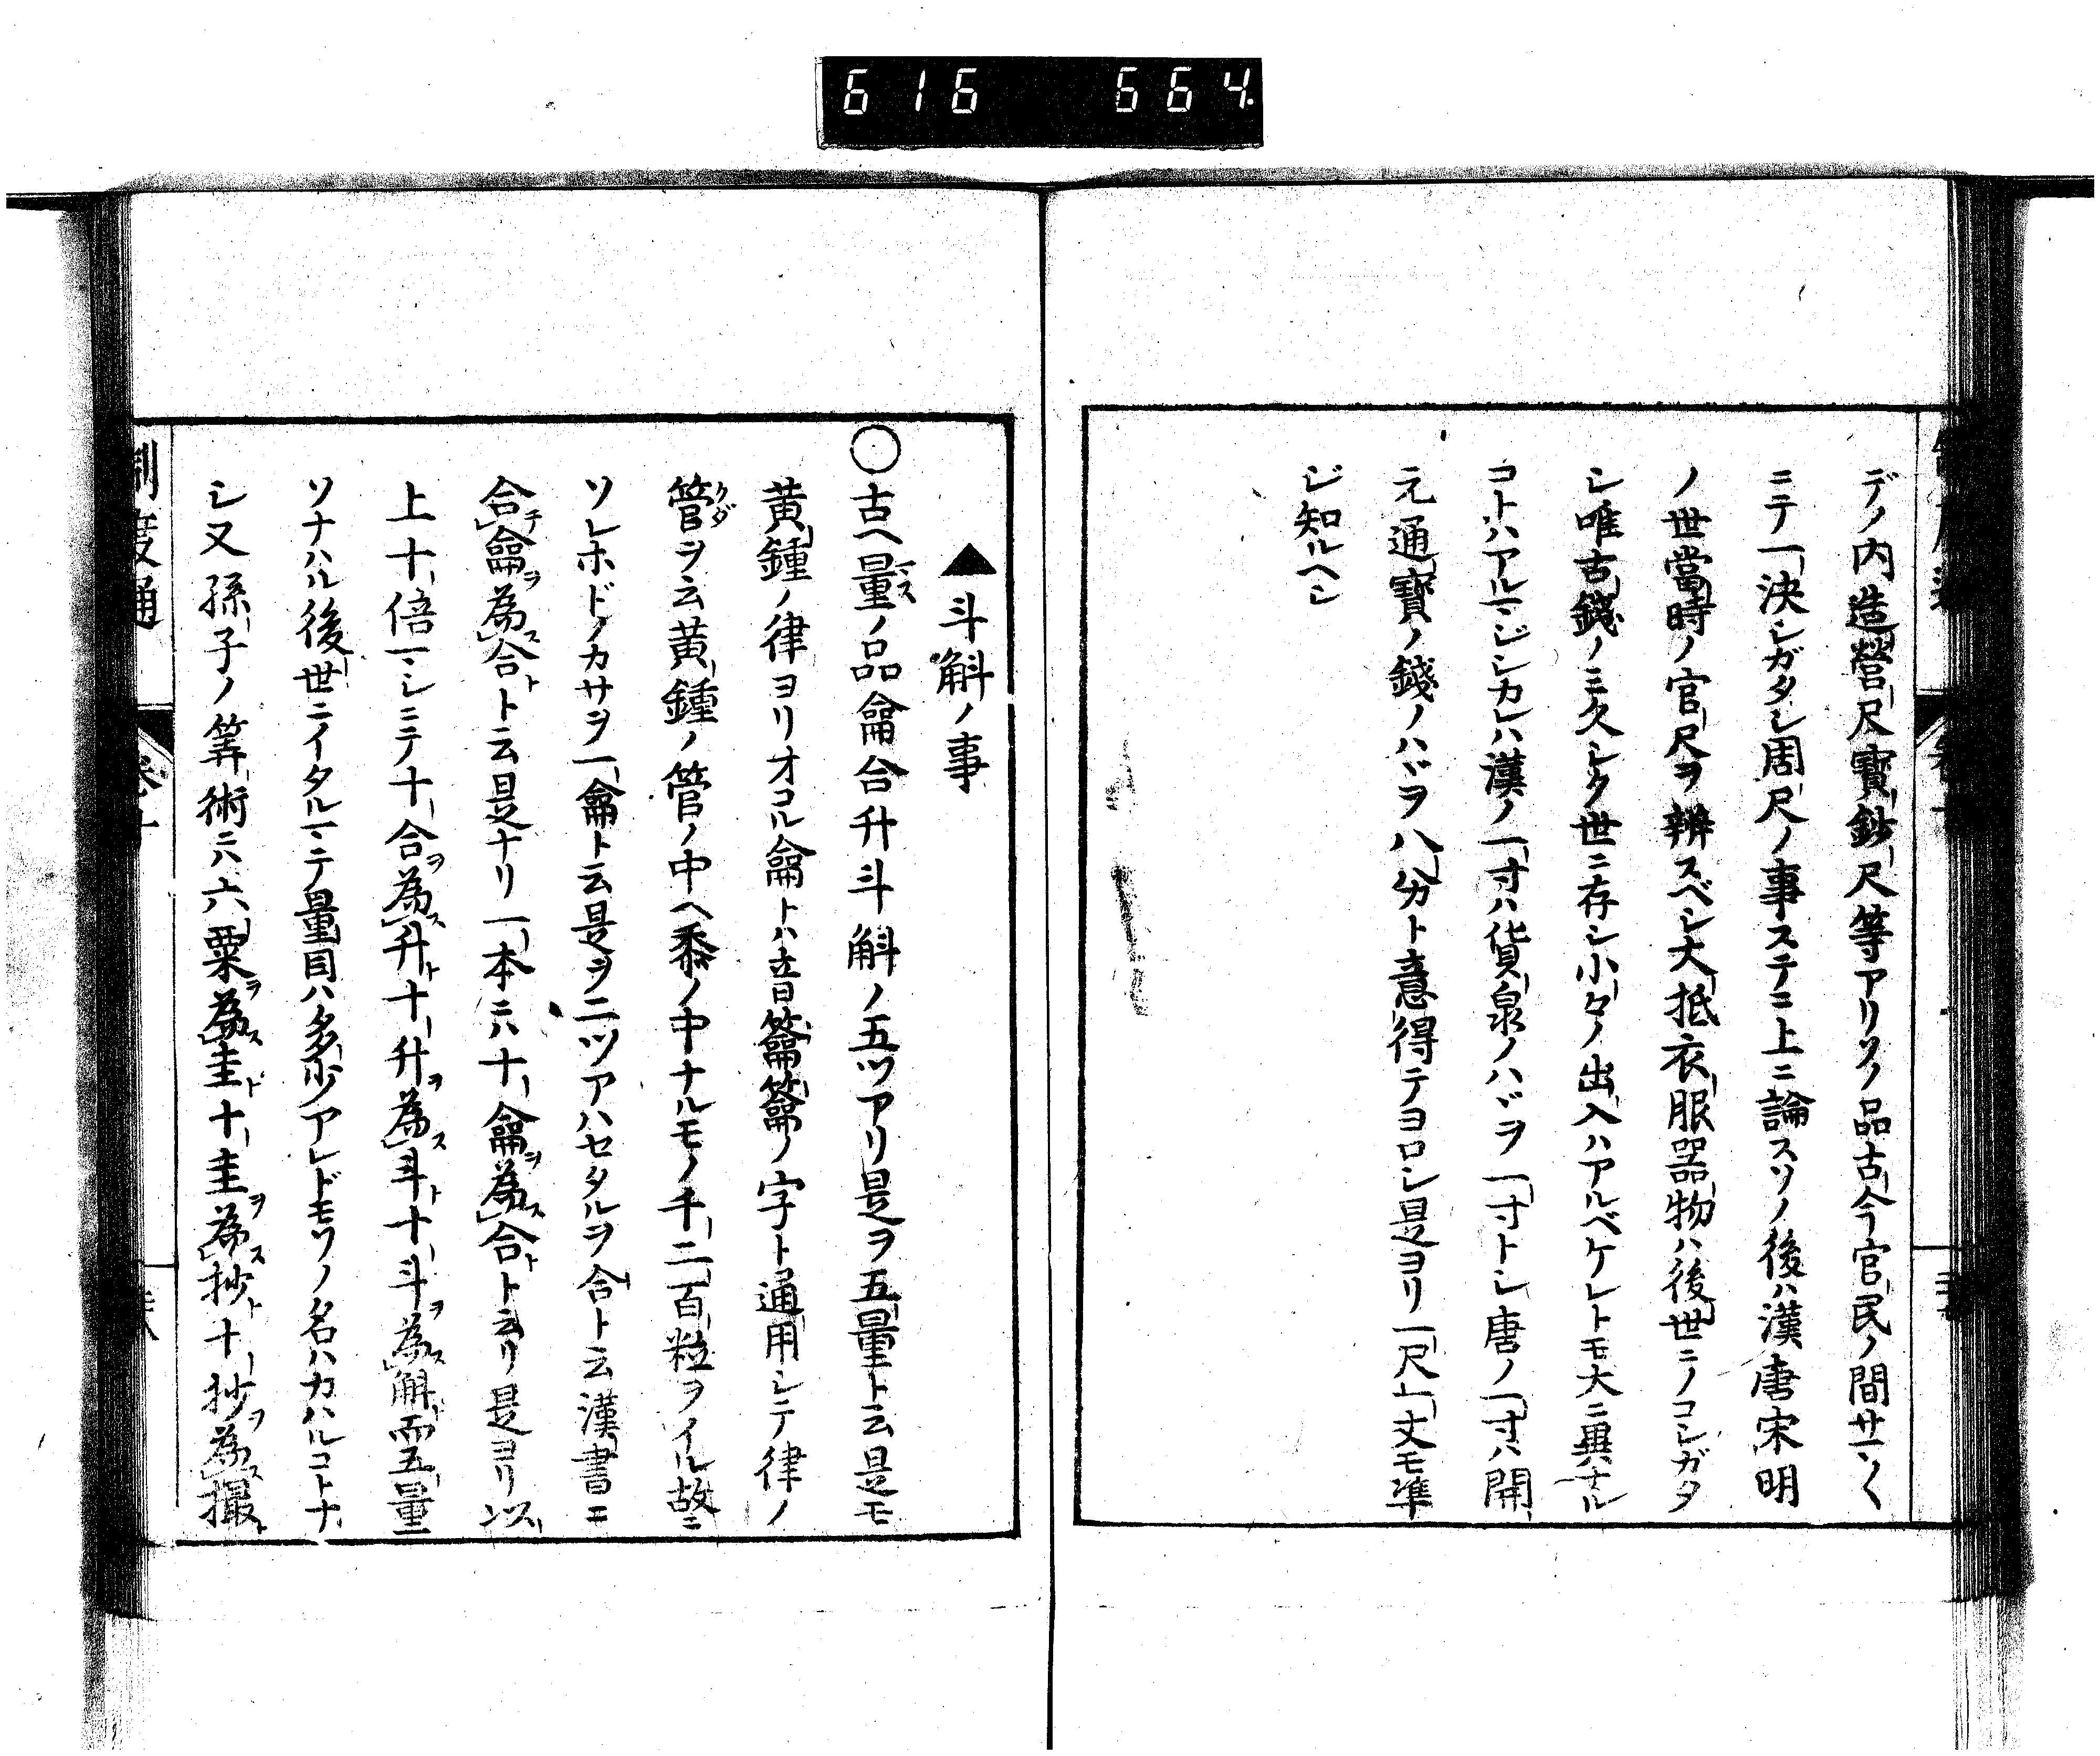 616 664
デノ内造營尺寶鈔尺等アリソノ品古今官民ノ間サマ〱
ニテ一決シガタシ周尺ノ事ステニ上ニ論スソノ後ハ漢唐宋明
ノ世當時ノ官尺ヲ辨スベシ大抵衣服器物ハ後世ニノコシガタ
シ唯古錢ノミ久シク世ニ存シ小々ノ出入ハアルベケレトモ大ニ異ナル
コトハアルマジシカレハ漢ノ一寸ハ貨泉ノハヾヲ一寸トシ唐ノ一寸ハ開
元通寶ノ錢ノハヾヲ八分ト意得テヨロシ是ヨリ一尺一丈モ準
ジ知ルヘシ
▲斗斛ノ事
〇古ヘ量ノ品龠合升斗斛ノ五ツアリ是ヲ五量ト云是モ
黄鍾ノ律ヨリオコル龠トハ音籥籥ノ字ト通用シテ律ノ
管ヲ云黄鍾ノ管ノ中ヘ黍ノ中ナルモノ千二百粒ヲイル故ニ
ソレホドノカサヲ一龠ト云是ヲ二ツアハセタルヲ合ト云漢書ニ
合龠為合ト云是ナリ一本ニハ十龠為合ト云リ是ヨリ以
上十倍マシニテ十合為升十升為斗十斗為斛而五量
ソナハル後世ニイタルマテ量目ハ多少アレドモソノ名ハカハルコトナ
シ又孫子ノ筭術ニハ六粟為圭十圭為抄十抄為撮
制度通